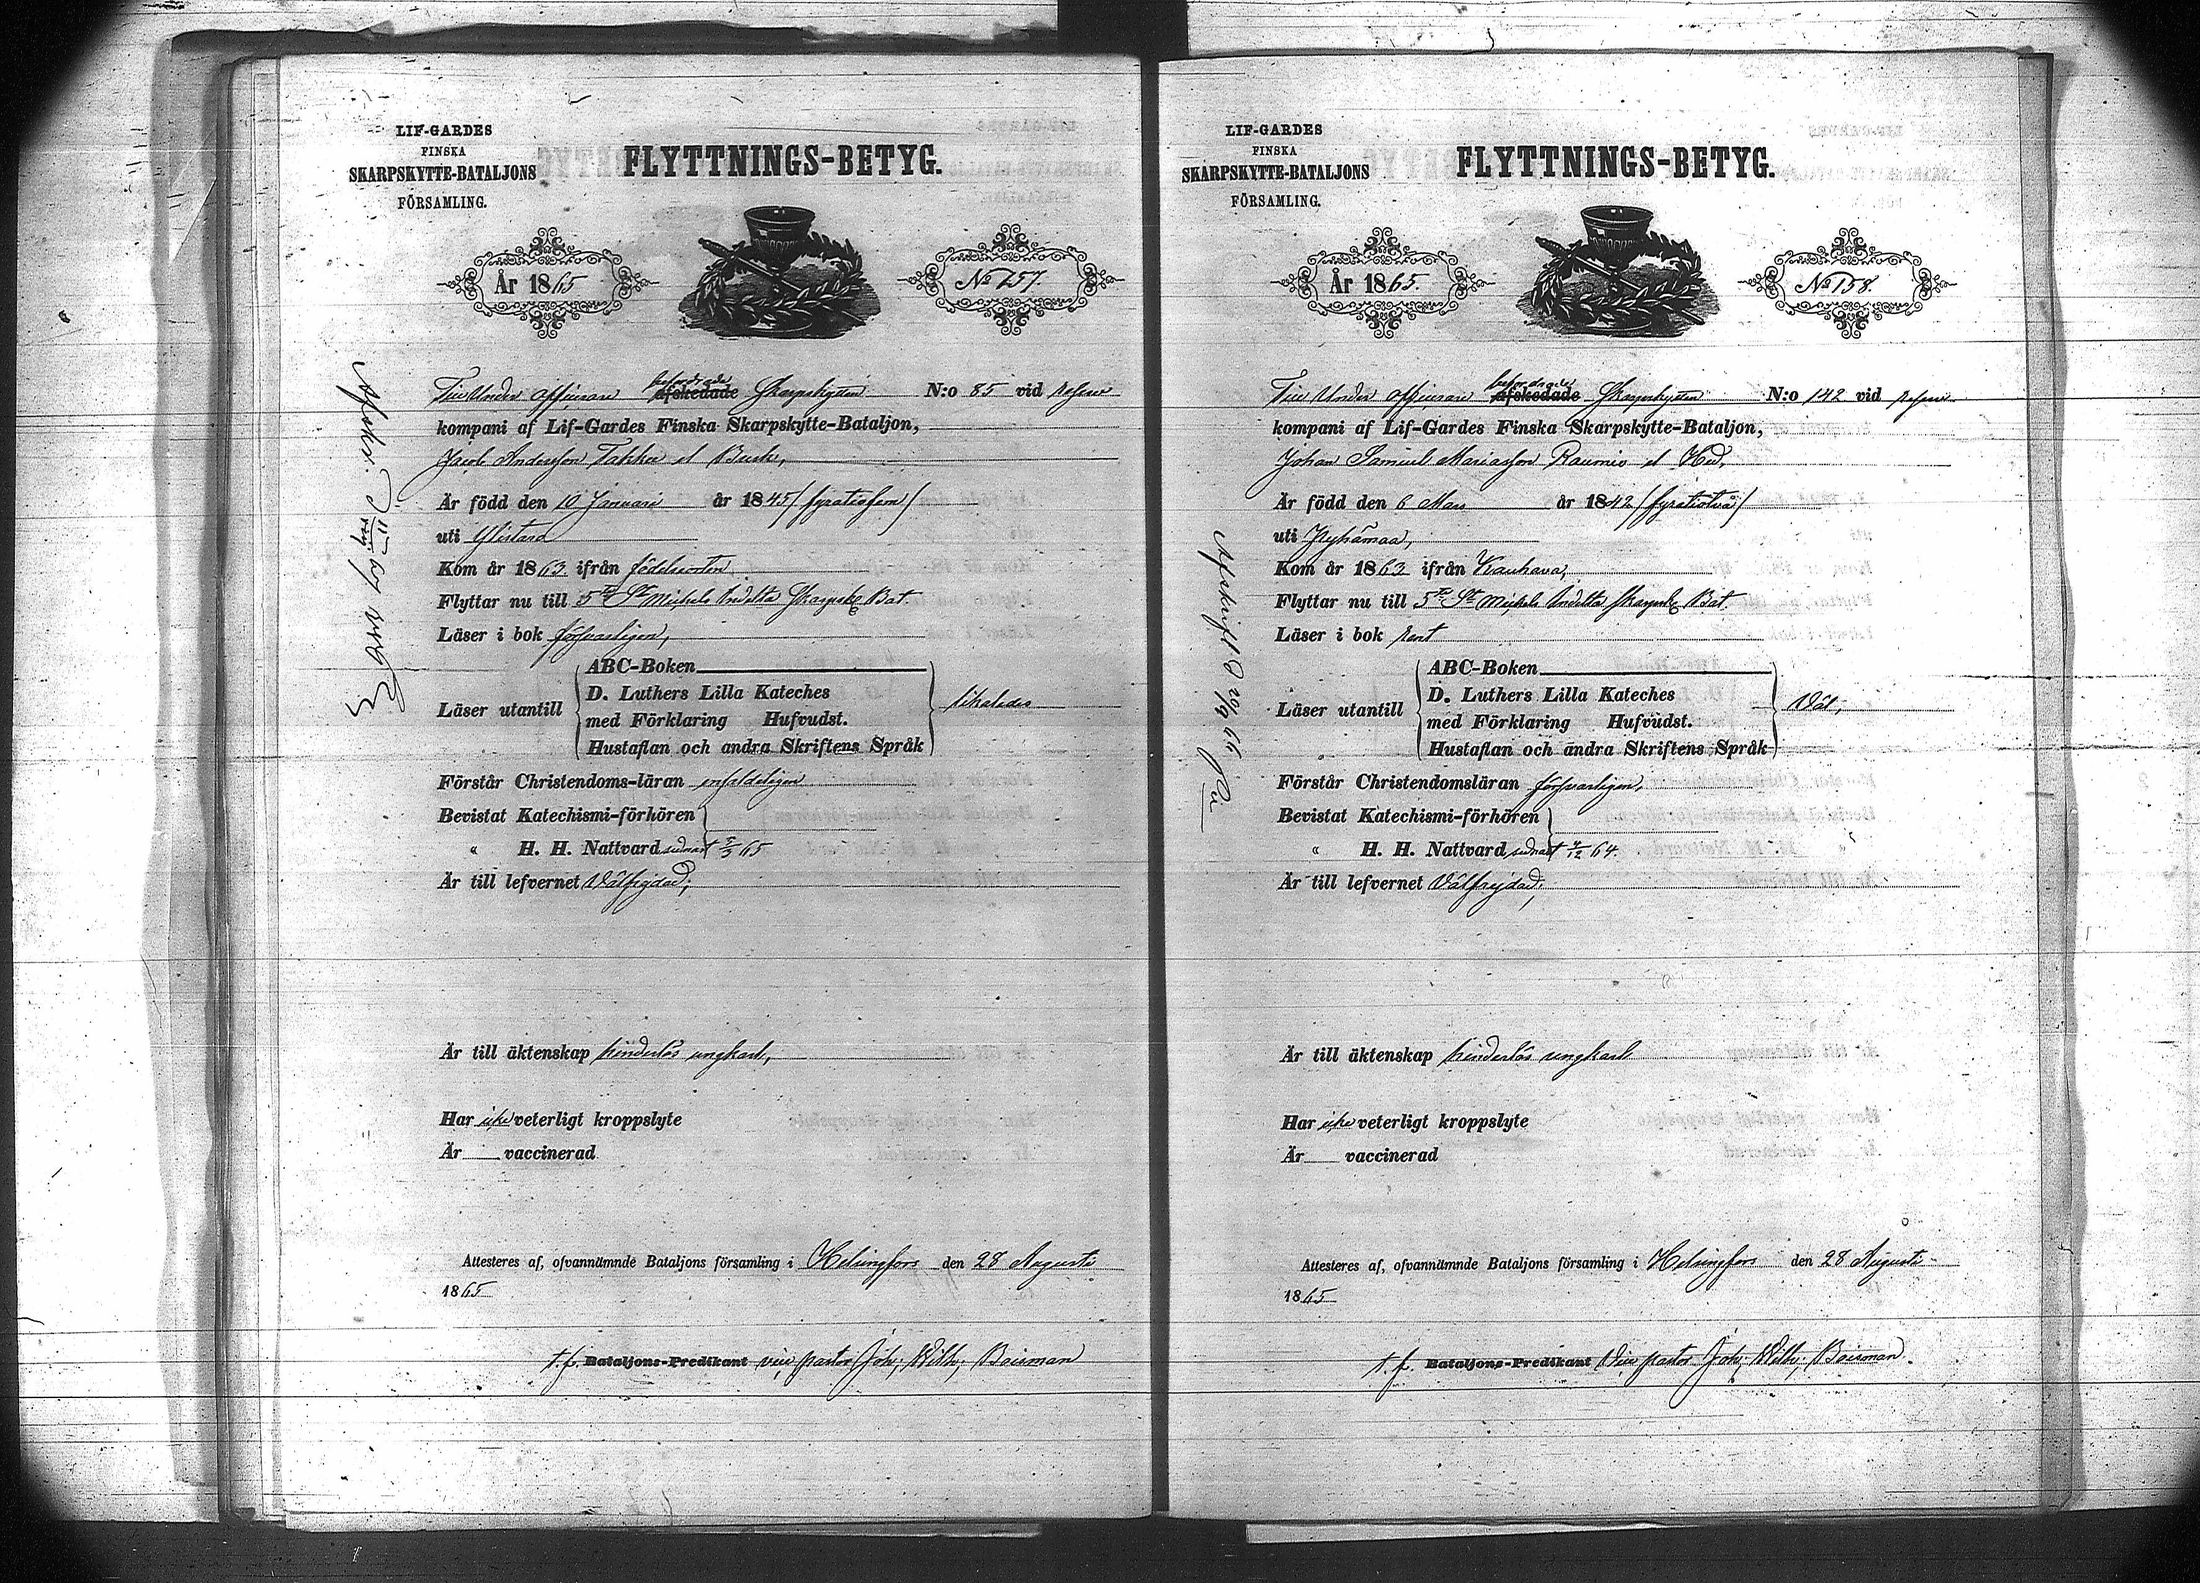 LIF-GARDES
FINSKA
SKARPSKYTTE-BATALJONS
FÖRSAMLING.
FLYTTNINGS-BETYG.
År 1865
No 157.
Till Under officerare befordrade afskedade Skarpskytten N:o 85 vid Reserv
kompani af Lif-Gardes Finska Skarpskytte-Bataljon,
Jacob Andersson Takko el Busk,
Är född den 10 Januari år 1845 / fyratiofem /
uti Ylistaro
Kom år 1863 ifrån födelseorten
Flyttar nu till 5te St Michels Indelta Skarpsk. Bat.
Läser i bok försvarligen,
Läser utantill
ABC-Boken
D. Luthers Lilla Kateches
med Förklaring Hufvudst.
Hustaflan och andra Skriftens Språk
likaledes
Förstår Christendoms-läran enfaldeligen
Bevistat Katechismi-förhören
" H. H. Nattvard sednast 5/3 65
Är till lefvernet Välfrejdad;
Är till äktenskap hinderlös ungkarl,
Har icke veterligt kroppslyte
Är vaccinerad
Attesteres af, ofvannämnde Bataljons församling i Helsingfors den 28 Augusti
1865
t. f. Bataljons-Predikant vice pastor Joh. Wilh. Boisman
LIF-GARDES
FINSKA
SKARPSKYTTE-BATALJONS
FÖRSAMLING.
FLYTTNINGS-BETYG.
År 1865.
No 158.
Till Under officerare befordrade afskedade Skarpskytten N:o 142 vid Reserv
kompani af Lif-Gardes Finska Skarpskytte-Bataljon,
Johan Samuel Mariasson Raumio el Hed,
Är född den 6 Mars år 1842 / fyratiotvå /
uti Kyhämaa,
Kom år 1863 ifrån Kauhava,
Flyttar nu till 5te St Michels Indelta Skarpsk. Bat.
Läser i bok rent
Läser utantill
ABC-Boken
D. Luthers Lilla Kateches
med Förklaring Hufvudst.
Hustaflan och andra Skriftens Språk
Väl,
Förstår Christendomsläran försvarligen,
Bevistat Katechismi-förhören
" H. H. Nattvard sednast 4/12 64.
Är till lefvernet Välfrejdad;
Är till äktenskap hinderlös ungkarl
Har icke veterligt kroppslyte
Är vaccinerad
Attesteres af, ofvannämnde Bataljons församling i Helsingfors den 28 Augusti
1865
t. f. Bataljons-Predikant Vice pastor Joh. Wilh. Boisman.